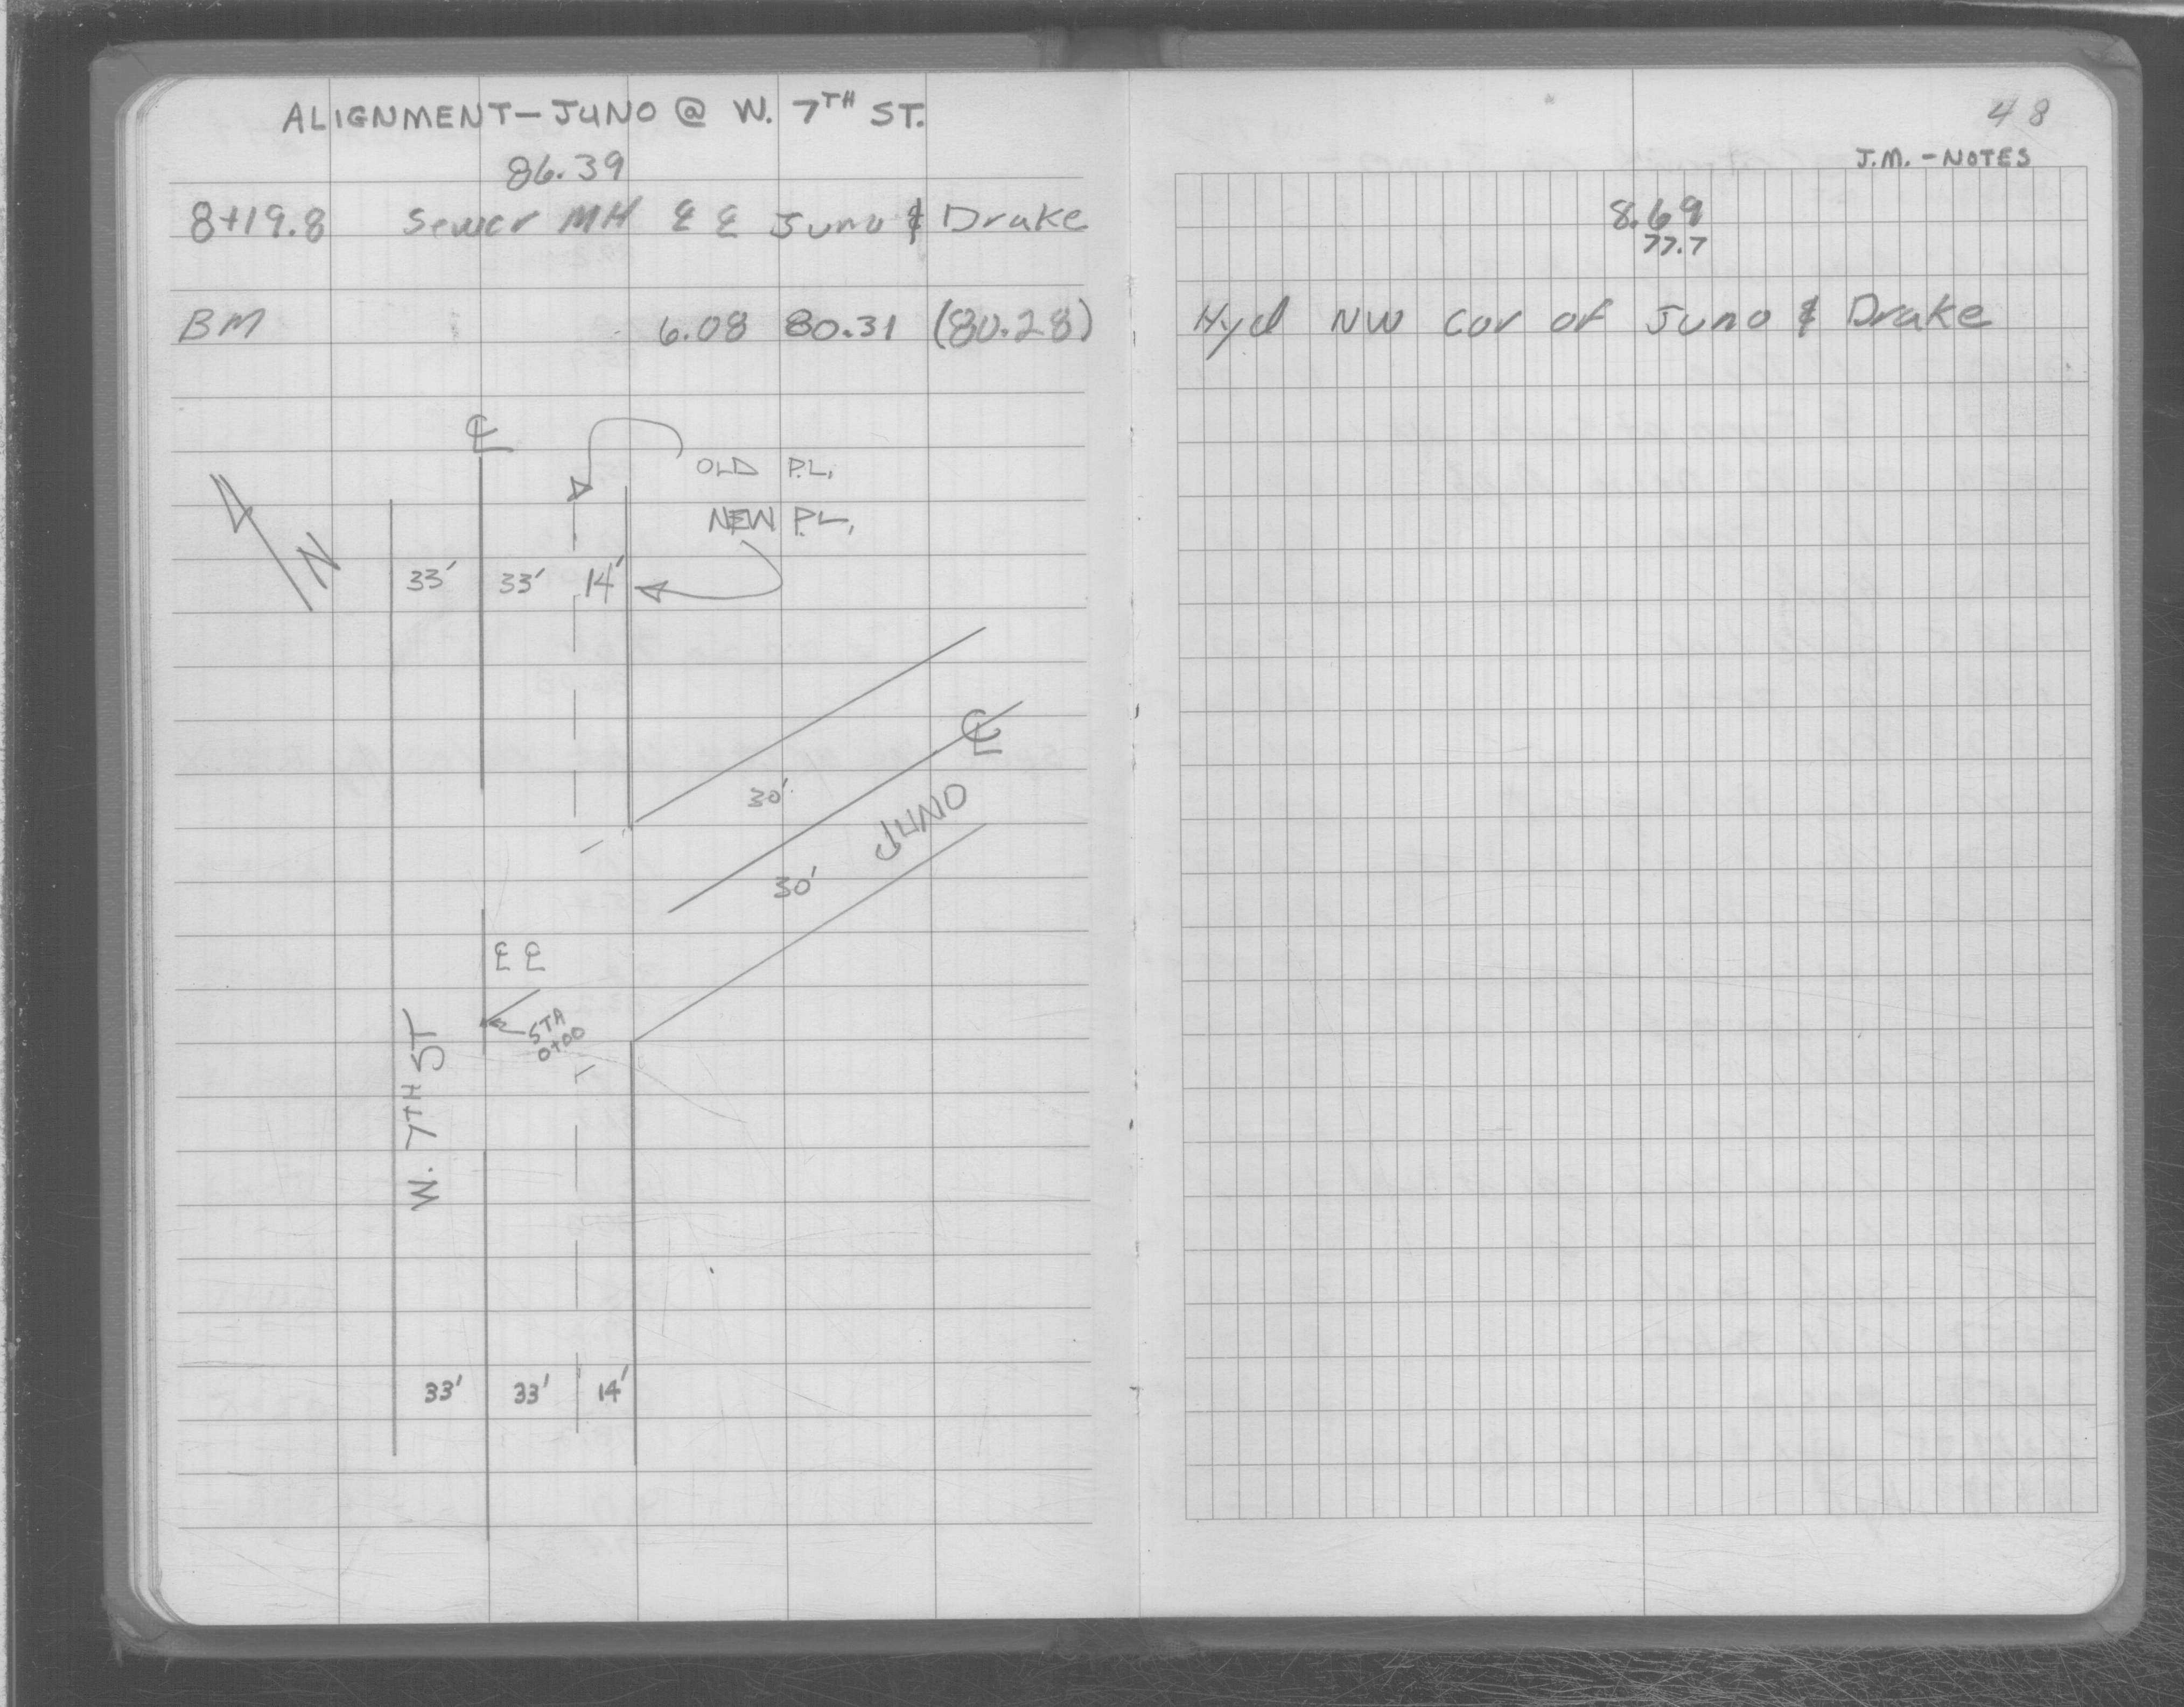 ALIGNMENT-JUNO @ W. 7TH ST.
86.39
8+19.8 Sewer MH ℄ ℄ Juno & Drake
BM 6.08 80.31 (80.28)
℄
OLD P.L.
NEW P.L.
N
33' 33' 14'
℄
30'
JUNO
30'
℄ ℄
STA
0+00
W. 7TH ST
33' 33' 14'
48
J.M. - NOTES
8.69
77.7
Hyd NW Cor of Juno & Drake